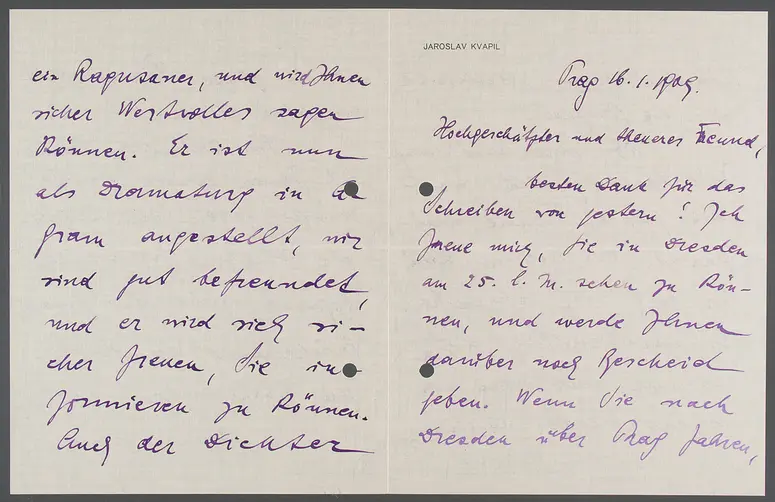 JAROSLAV KVAPIL
Prag 16. 1. 1909.
Hochgeschätzter und theuerer Freund,
besten Dank für das
Schreiben von gestern! Ich
freue mich, Sie in Dresden
am 25. l. M. sehen zu kön-
nen, und werde Ihnen
darüber noch Bescheid
geben. Wenn Sie nach
Dresden über Prag fahren,
ein Ragusaner, und wird Ihnen
sicher Wertvolles sagen
können. Er ist nun
als Dramaturg in A-
gram angestellt, wir
sind gut befreundet,
und er wird sich si-
cher freuen, Sie in-
formieren zu können.
Auch der Dichter